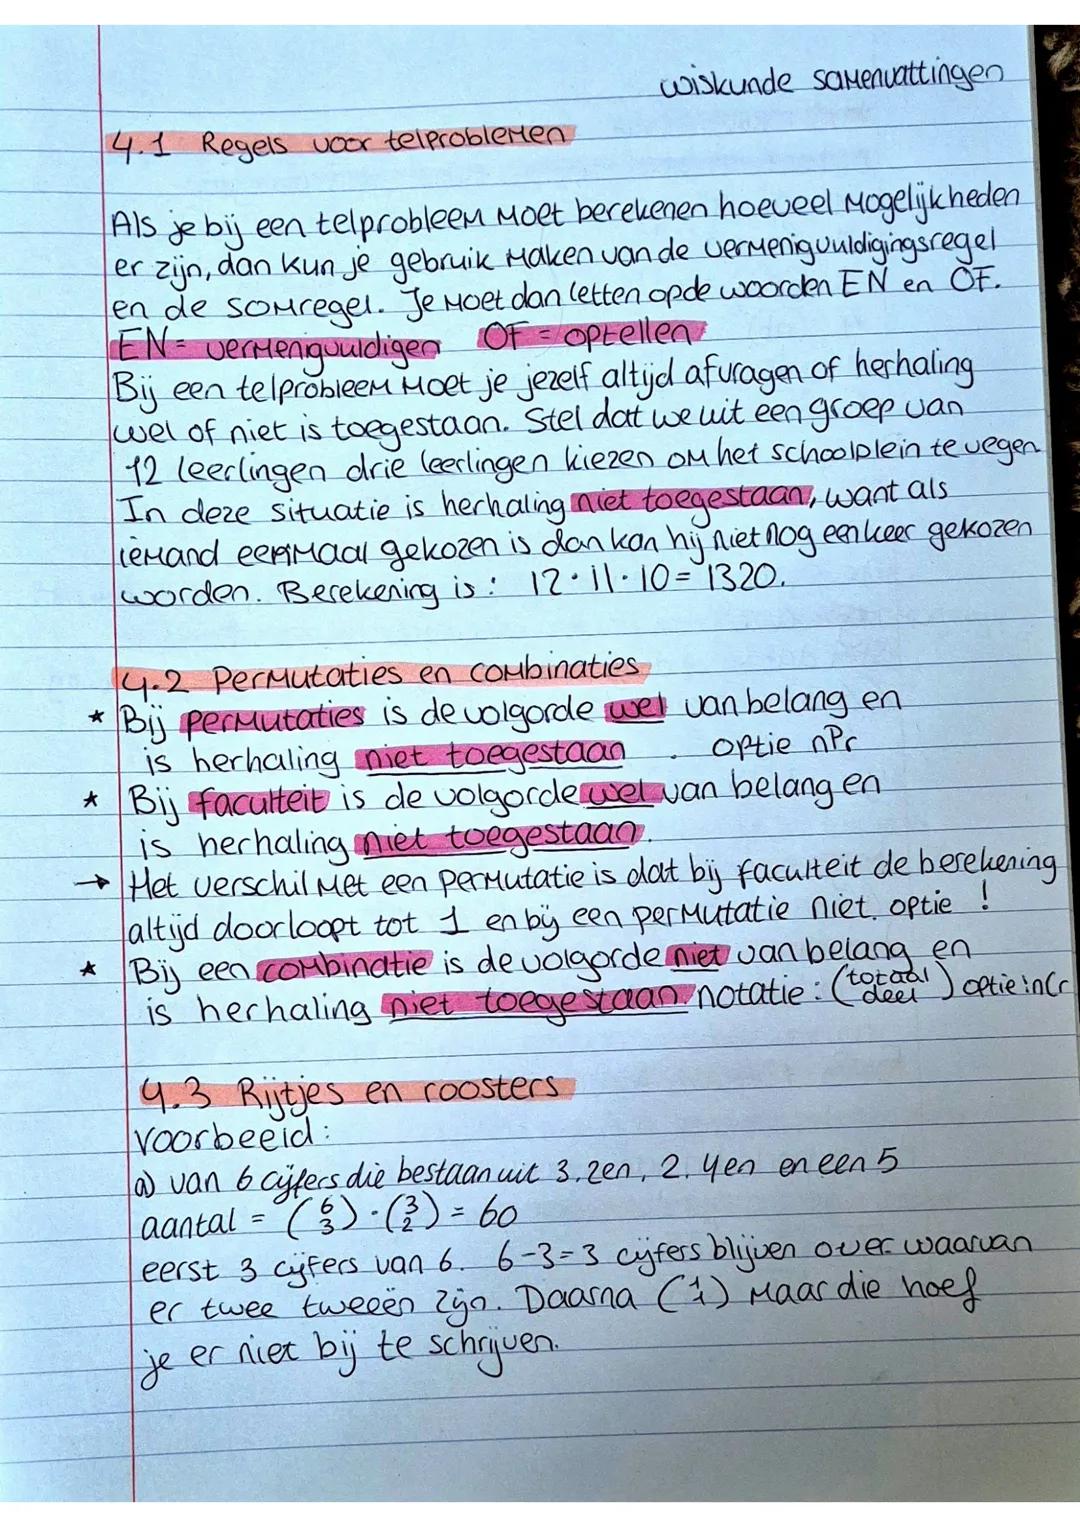 wiskunde samenvattingen
4.1 Regels voor telproblemen
Als je bij een telprobleem moet berekenen hoeveel mogelijkheden
er zijn, dan kun je gebruik maken van de vermenigvuldigingsregel
en de somregel. Je moet dan letten op de woorden EN en OF.
EN = vermenigvuldigen OF = optellen
Bij een telprobleem moet je jezelf altijd afvragen of herhaling
wel of niet is toegestaan. Stel dat we uit een groep van
12 leerlingen drie leerlingen kiezen om het schoolplein te vegen
In deze situatie is herhaling niet toegestaan, want als
iemand eenmaal gekozen is dan kan hij niet nog een keer gekozen
worden. Berekening is: 12·11·10= 1320.
4.2 Permutaties en combinaties
* Bij permutaties is de volgorde wel van belang en
is herhaling niet toegestaan. optie nPr
* Bij faculteit is de volgorde wel van belang en
is herhaling niet toegestaan.
→ Het verschil met een permutatie is dat bij faculteit de berekening
altijd doorloopt tot 1 en bij een permutatie niet. optie !
* Bij een combinatie is de volgorde niet van belang en
is herhaling niet toegestaan. notatie: (totaal deel) optie: nCr
4.3 Rijtjes en roosters
voorbeeld:
a) van 6 cijfers die bestaan uit 3, 2en, 2, 4en en een 5
aantal = (6 3)·(3 2) = 60
eerst 3 cijfers van 6. 6-3=3 cijfers blijven over waarvan
er twee tweeën zijn. Daarna (1 1) maar die hoef
je er niet bij te schrijven.